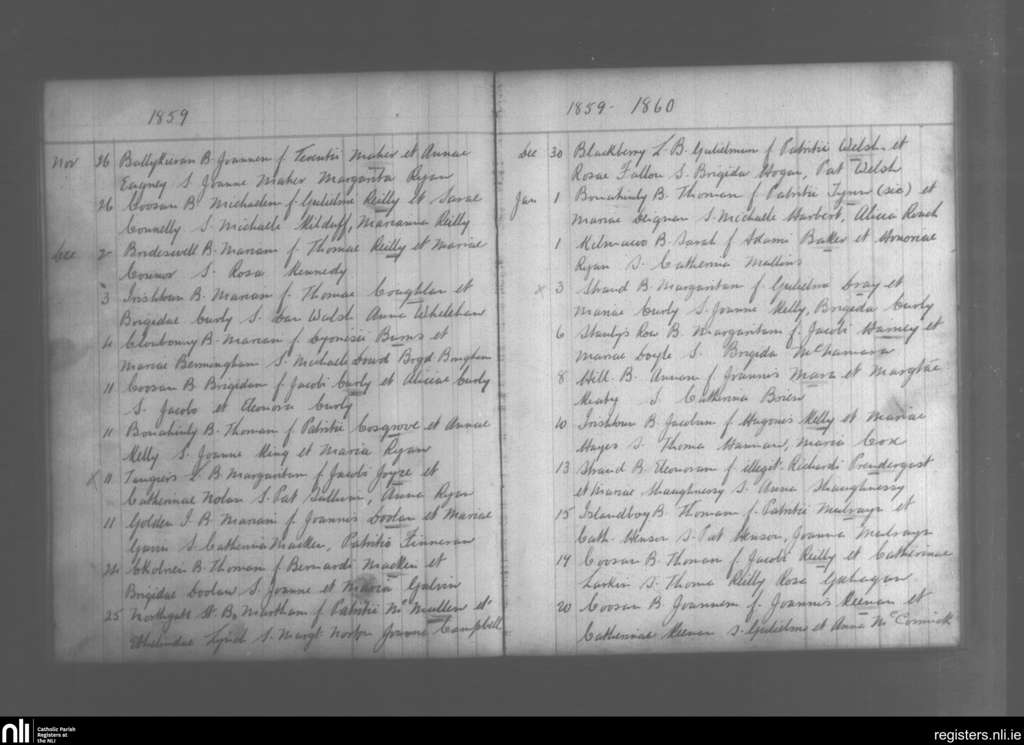 1859
Nov 26 Ballykieran B Joannem f Terentii Maher et Annae
Eagney S Joanne Maher Margarita Ryan
26 Coosan B Michaelem f Gulielmi Reilly et Sarae
Connelly S. Michaele Kilduff, Marianna Reilly
Dec 2 Brideswell B Mariam f Thomae Reilly et Mariae
S. Rosa Kennedy
3 Irishtown B. Mariam f. Thomae Coughlan et
Brigidae Curly S. Dan Walsh Anna Whelehan
4 Clonbonny B. Mariam f Dyonisii Burns et
Mariae Bermingham S Michaele Dowd Brgd Brigham
11 Coosan B Brigidam f Jacobi Curly et Aliciae Curly
S. Jacobo et Eleonora Curly
11 Bonahinly B. Thomam f Patritii Cosgrove et Annae
Kelly S Joanne King et Maria Ryan
x 11 Tangiers L B Margaritam f Jacobi Joyce et
Catherinae Nolan S. Pat Anna Ryan
11 Golden I. B Mariam f. Joannis Doolan et Mariae
Gavin S Catherina Macken, Patritio Finneran
24 B. Thomam f Bernardi Macken et
Brigidae Doolan S Joanne et Maria Galvin
25 Northgate St B, Martham f Patritii Mc Mullen et
Ethelindae Lynch S. Margt Norton Joanne Campbell
1859 - 1860
Dec 30 Blackberry L B. Gulielmum f Patritii Welsh et
Rosae Fallon S. Brigida Hogan, Pat Welsh
Jan 1 Bonahinly B. Thomam f Patritii Fynn (sic) et
Mariae Deignan S. Michaele Harbert, Alicia Roach
1 Kilmacue B. Sarah f Adami Baker et Honoriae
Ryan S. Catherina Mullins
x 3 Strand B Margaritam f Gulielmi Dray et
Mariae Curly S. Joanne Kelly, Brigida Curly
6 Stanly's Row B. Margaritam f. Jacobi Harney et
Mariae Doyle S. Brigida McNamara
8 Hill B. Annam f Joannis Mara et Margtae
Keaty S Catherina
10 Irishtown B Jacobum f Hugonis Kelly et Mariae
Hayes S. Thoma Hannan, Maria Cox
13 Strand B Eleonoram f illegit Richardi Prendergast
et Mariae Shaughnessy S. Anna Shaughnessy
15 Islandboy B. Thomam f. Patritii Mulvany et
Cath. Henson S. Pat Henson, Joanna Mulvany
19 Coosan B. Thomam f Jacobi Reilly et Catherinae
Larkin S. Thoma Reilly Rosa Gahagan
20 Coosan B Joannem f Joannis Keenan et
Catherinae Keenan S. Gulielmo et Anna McCormick
nli Catholic Parish
Registers at
the NLI
registers.nli.ie